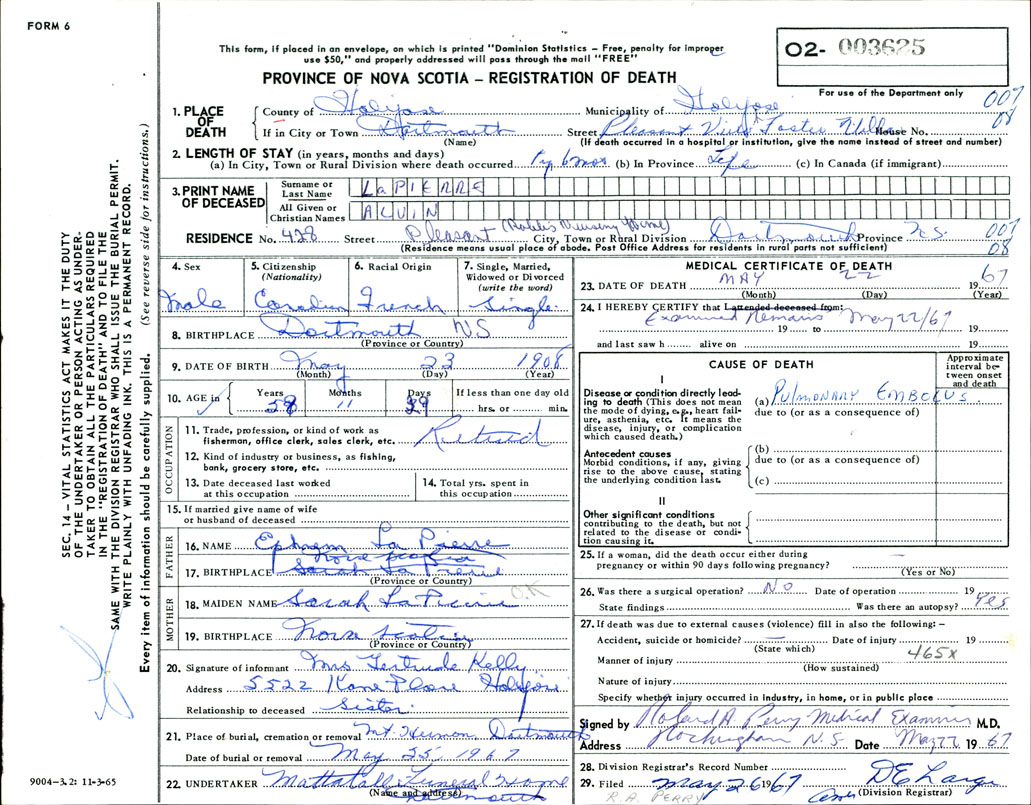 FORM 6
This form, if placed in an envelope, on which is printed "Dominion Statistics – Free, penalty for improper
use $50," and properly addressed will pass through the mail "FREE"
PROVINCE OF NOVA SCOTIA – REGISTRATION OF DEATH
02- 003625
For use of the Department only
007
08
1. PLACE OF DEATH
County of Halifax Municipality of Halifax
If in City or Town Dartmouth Street Pleasant View Foster House No.
(Name) (If death occurred in a hospital or institution, give the name instead of street and number)
2. LENGTH OF STAY (in years, months and days)
(a) In City, Town or Rural Division where death occurred 6 mos (b) In Province Life (c) In Canada (if immigrant)
3. PRINT NAME OF DECEASED
Surname or Last Name LaPIERRE
All Given or Christian Names ALVIN
RESIDENCE No. 428 Street Pleasant (Nursing Home) City, Town or Rural Division Dartmouth Province N.S.
007
08
(Residence means usual place of abode. Post Office Address for residents in rural parts not sufficient)
4. Sex Male
5. Citizenship (Nationality) Canadian
6. Racial Origin French
7. Single, Married, Widowed or Divorced (write the word) Single
8. BIRTHPLACE Dartmouth N.S
(Province or Country)
9. DATE OF BIRTH May 23 1908
(Month) (Day) (Year)
10. AGE in Years 58 Months 11 Days 29 If less than one day old hrs. or min.
OCCUPATION
11. Trade, profession, or kind of work as fisherman, office clerk, sales clerk, etc. Retired
12. Kind of industry or business, as fishing, bank, grocery store, etc.
13. Date deceased last worked at this occupation
14. Total yrs. spent in this occupation
15. If married give name of wife or husband of deceased
FATHER
16. NAME Ephrem La Pierre
Nova Scotia
17. BIRTHPLACE Sarah La Pierre
(Province or Country)
MOTHER
18. MAIDEN NAME Sarah LaPierre O.K
19. BIRTHPLACE Nova Scotia
(Province or Country)
20. Signature of informant Mrs Gertrude Kelly
Address 5522 Kane Place Halifax
Relationship to deceased Sister
21. Place of burial, cremation or removal Mt. Hermon Dartmouth
Date of burial or removal May 25 1967
22. UNDERTAKER Mattatall Funeral Home
(Name and address) Dartmouth
MEDICAL CERTIFICATE OF DEATH
23. DATE OF DEATH MAY 22 1967
(Month) (Day) (Year)
24. I HEREBY CERTIFY that I attended deceased from:
Examined Remains May 22/67
19 to 19
and last saw h alive on 19
CAUSE OF DEATH
Approximate interval between onset and death
I
Disease or condition directly leading to death (This does not mean the mode of dying, e.g., heart failure, asthenia, etc. It means the disease, injury, or complication which caused death.)
(a) PULMONARY EMBOLUS
due to (or as a consequence of)
Antecedent causes
Morbid conditions, if any, giving rise to the above cause, stating the underlying condition last.
(b)
due to (or as a consequence of)
(c)
II
Other significant conditions
contributing to the death, but not related to the disease or condition causing it.
25. If a woman, did the death occur either during pregnancy or within 90 days following pregnancy? —
(Yes or No)
26. Was there a surgical operation? NO Date of operation 19
State findings Was there an autopsy? Yes
27. If death was due to external causes (violence) fill in also the following: –
Accident, suicide or homicide? — Date of injury 19
(State which) 465x
Manner of injury
(How sustained)
Nature of injury
Specify whether injury occurred in industry, in home, or in public place
Signed by Roland A. Perry Medical Examiner M.D.
Address Rockingham N.S. Date May 22 1967
28. Division Registrar's Record Number
29. Filed May 26 1967
(Division Registrar)
R.A. PERRY
SEC. 14 – VITAL STATISTICS ACT MAKES IT THE DUTY
OF THE UNDERTAKER OR PERSON ACTING AS UNDER-
TAKER TO OBTAIN ALL THE PARTICULARS REQUIRED
IN THE "REGISTRATION OF DEATH" AND TO FILE THE
SAME WITH THE DIVISION REGISTRAR WHO SHALL ISSUE THE BURIAL PERMIT.
WRITE PLAINLY WITH UNFADING INK. THIS IS A PERMANENT RECORD.
Every item of information should be carefully supplied. (See reverse side for instructions.)
9004–3.2: 11-3-65